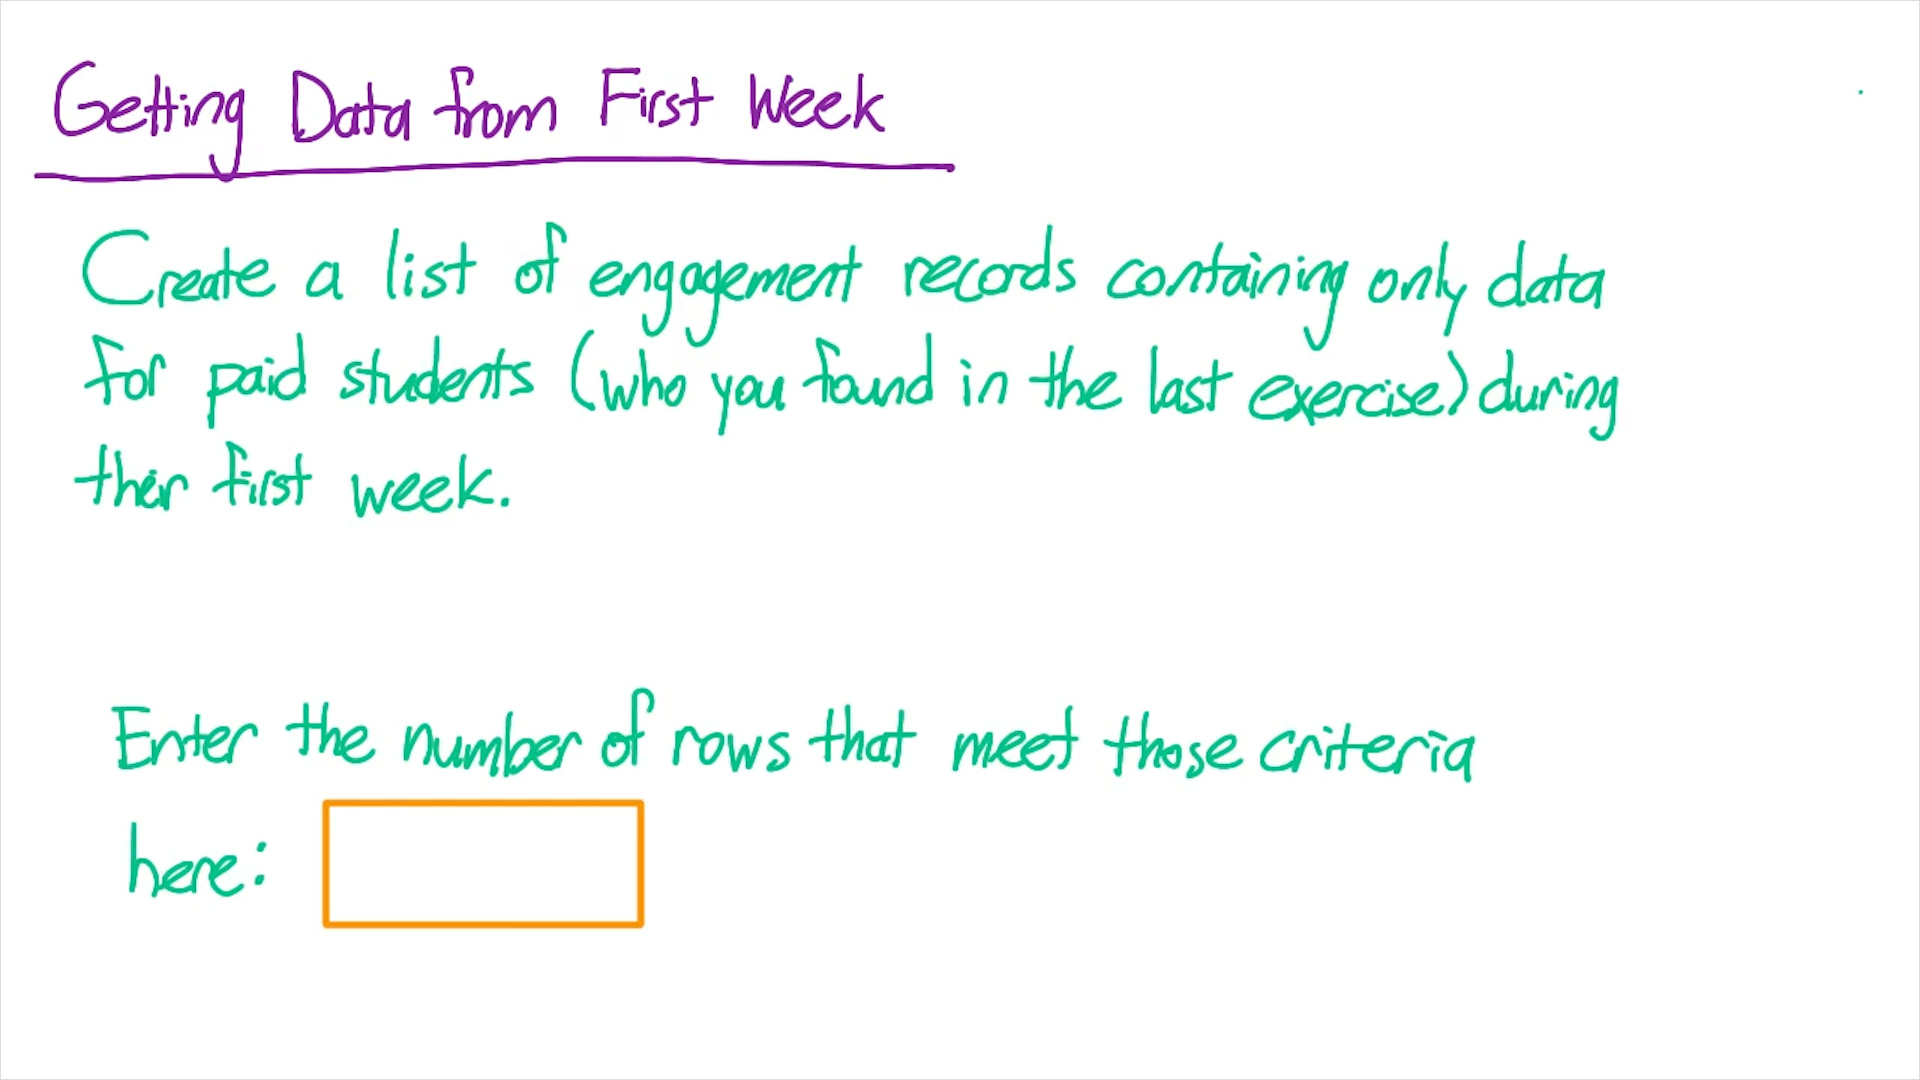 Getting Data from First Week
Create a list of engagement records containing only data
for paid students (who you found in the last exercise) during
their first week.
Enter the number of rows that meet those criteria
here: